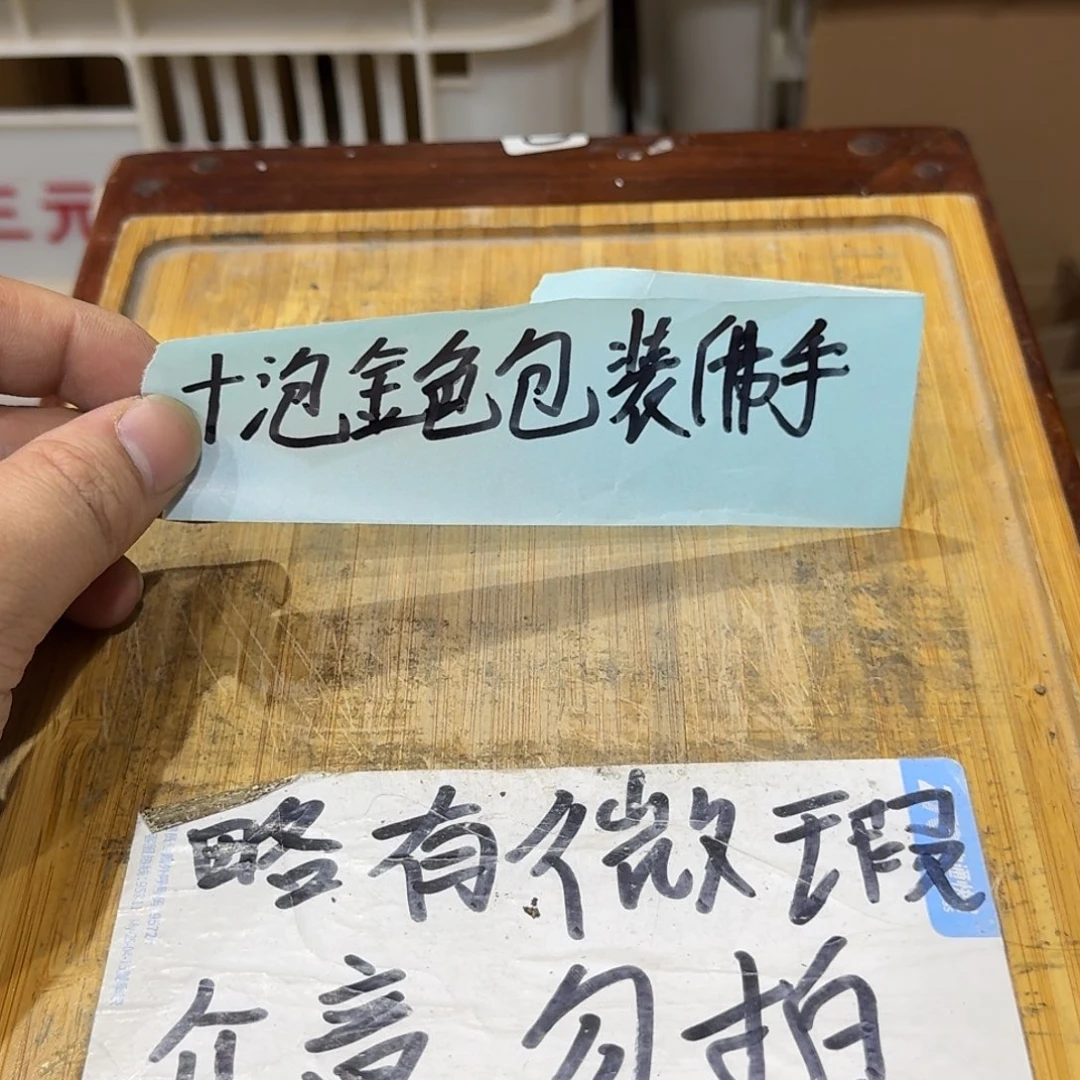 三元
十泡金色包装佛手
略有微瑕
介意勿拍